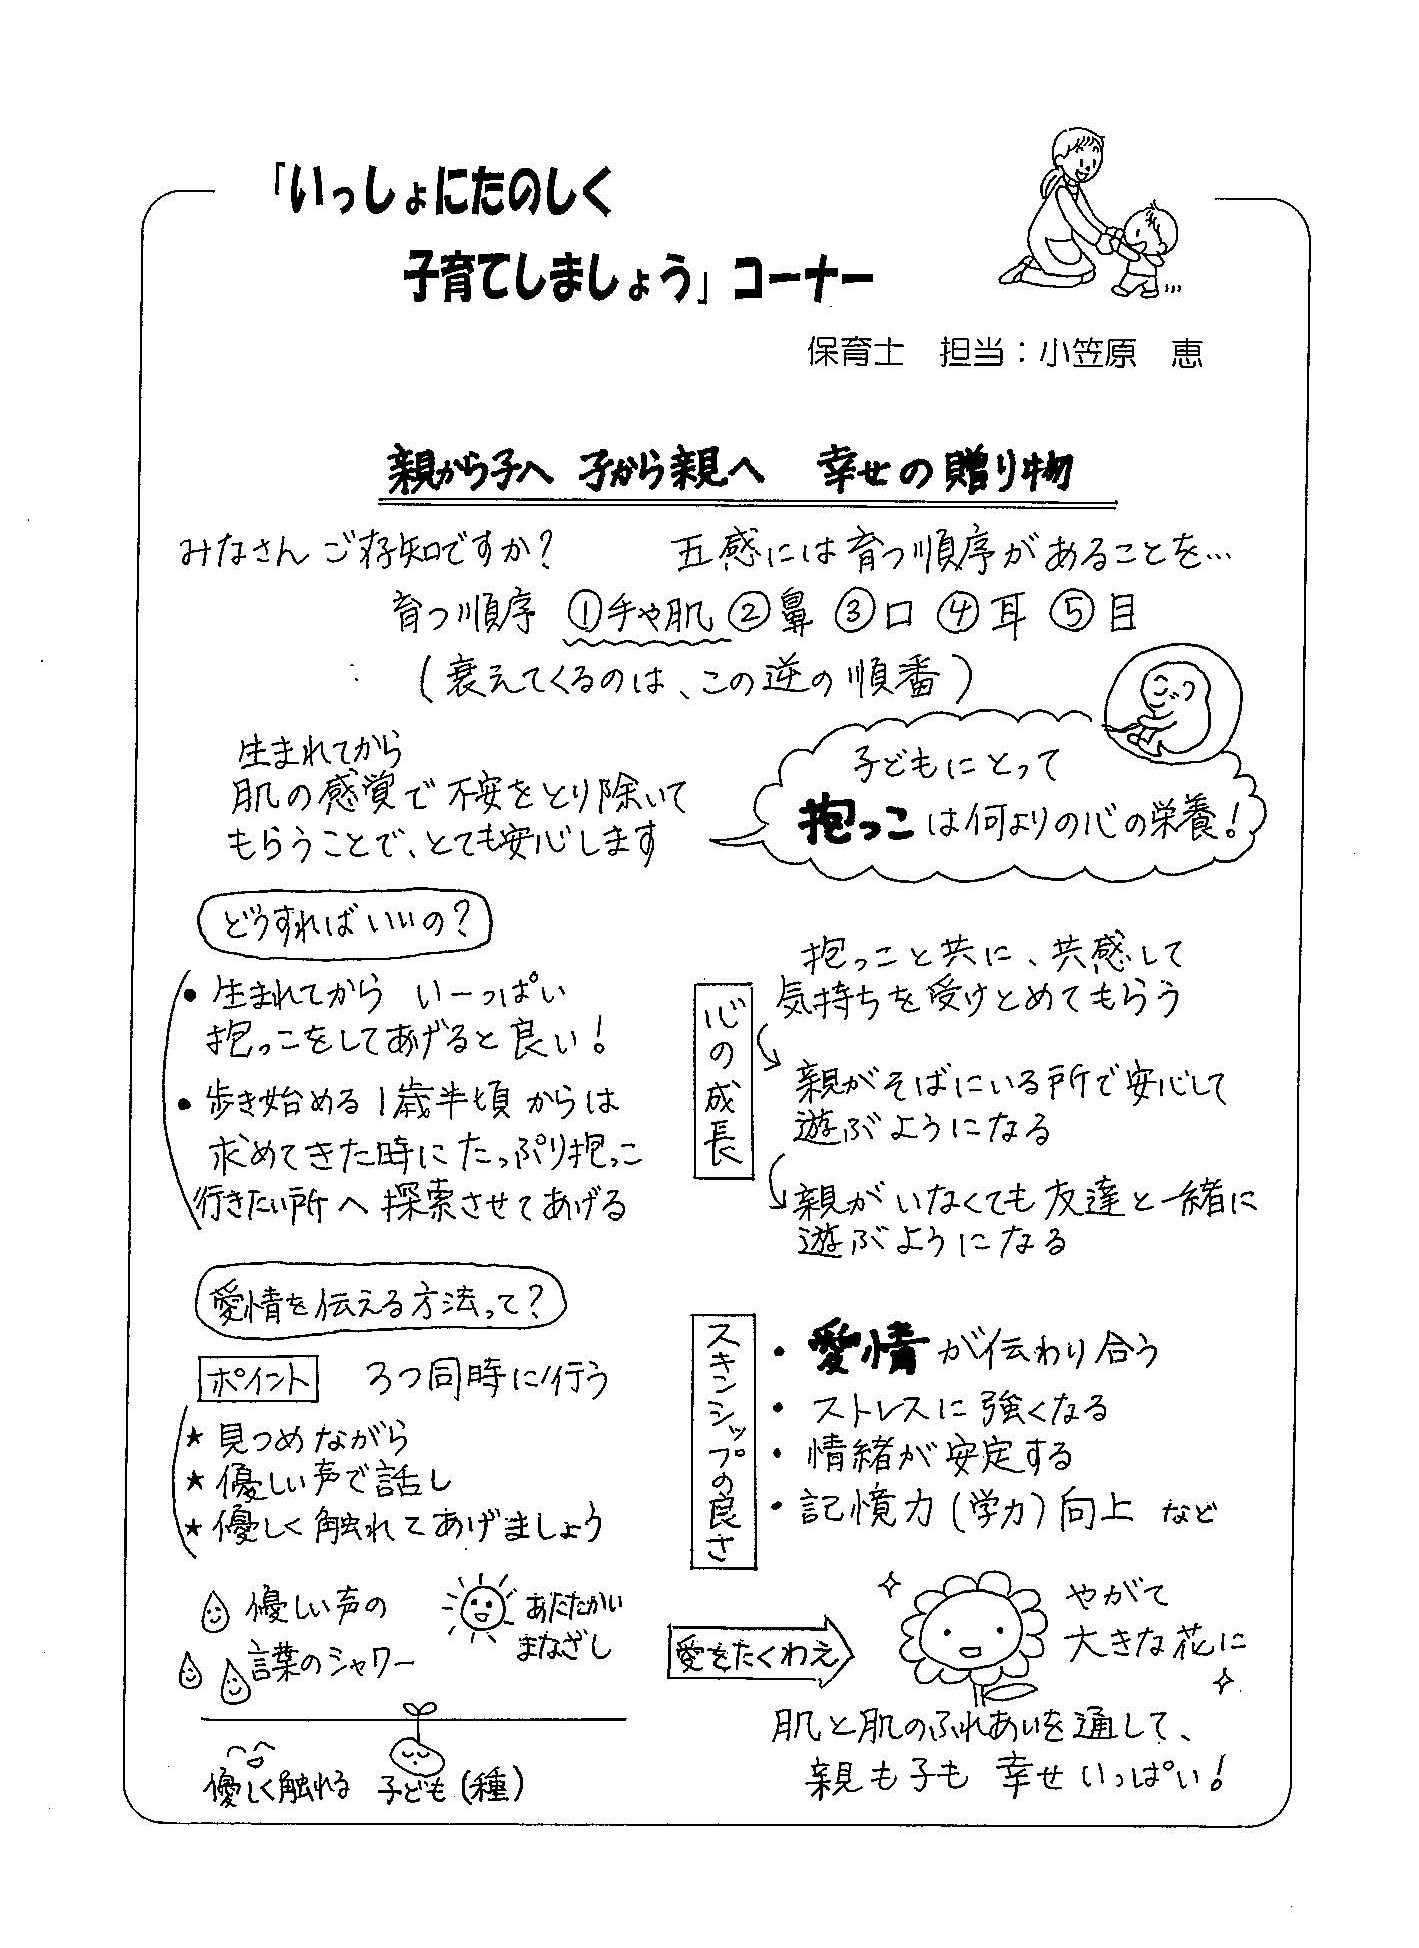 「いっしょにたのしく
子育てしましょう」コーナー
保育士　担当：小笠原　恵
親から子へ 子から親へ　幸せの贈り物
みなさん ご存知ですか？　五感には育つ順序があることを…
育つ順序 ①手や肌 ②鼻 ③口 ④耳 ⑤目
（衰えてくるのは、この逆の順番）
生まれてから
肌の感覚で不安をとり除いて
もらうことで、とても安心します
子どもにとって
抱っこは何よりの心の栄養！
どうすればいいの？
・生まれてから いーっぱい
抱っこをしてあげると良い！
・歩き始める1歳半頃からは
求めてきた時にたっぷり抱っこ
行きたい所へ探索させてあげる
心の成長
抱っこと共に、共感して
気持ちを受けとめてもらう
親がそばにいる所で安心して
遊ぶようになる
親がいなくても友達と一緒に
遊ぶようになる
愛情を伝える方法って？
ポイント　3つ同時に行う
★見つめながら
★優しい声で話し
★優しく触れてあげましょう
スキンシップの良さ
・愛情が伝わり合う
・ストレスに強くなる
・情緒が安定する
・記憶力（学力）向上 など
優しい声の
言葉のシャワー
あたたかい
まなざし
優しく触れる
子ども（種）
愛をたくわえ
やがて
大きな花に
肌と肌のふれあいを通して、
親も子も 幸せいっぱい！